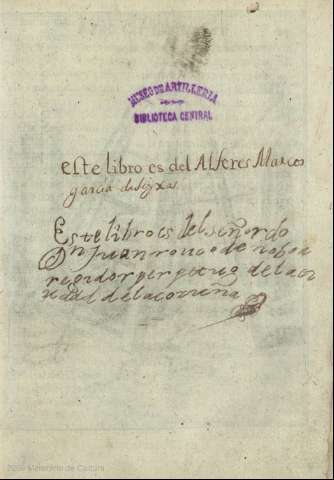 MUSEO DE ARTILLERIA
BIBLIOTECA CENTRAL
este libro es del Alferes Marcos
garcia de
Este libro es del señor do
n juan rouco de
regidor perpetuo de la ciu
dad de la corruña
2009 Ministerio de Cultura